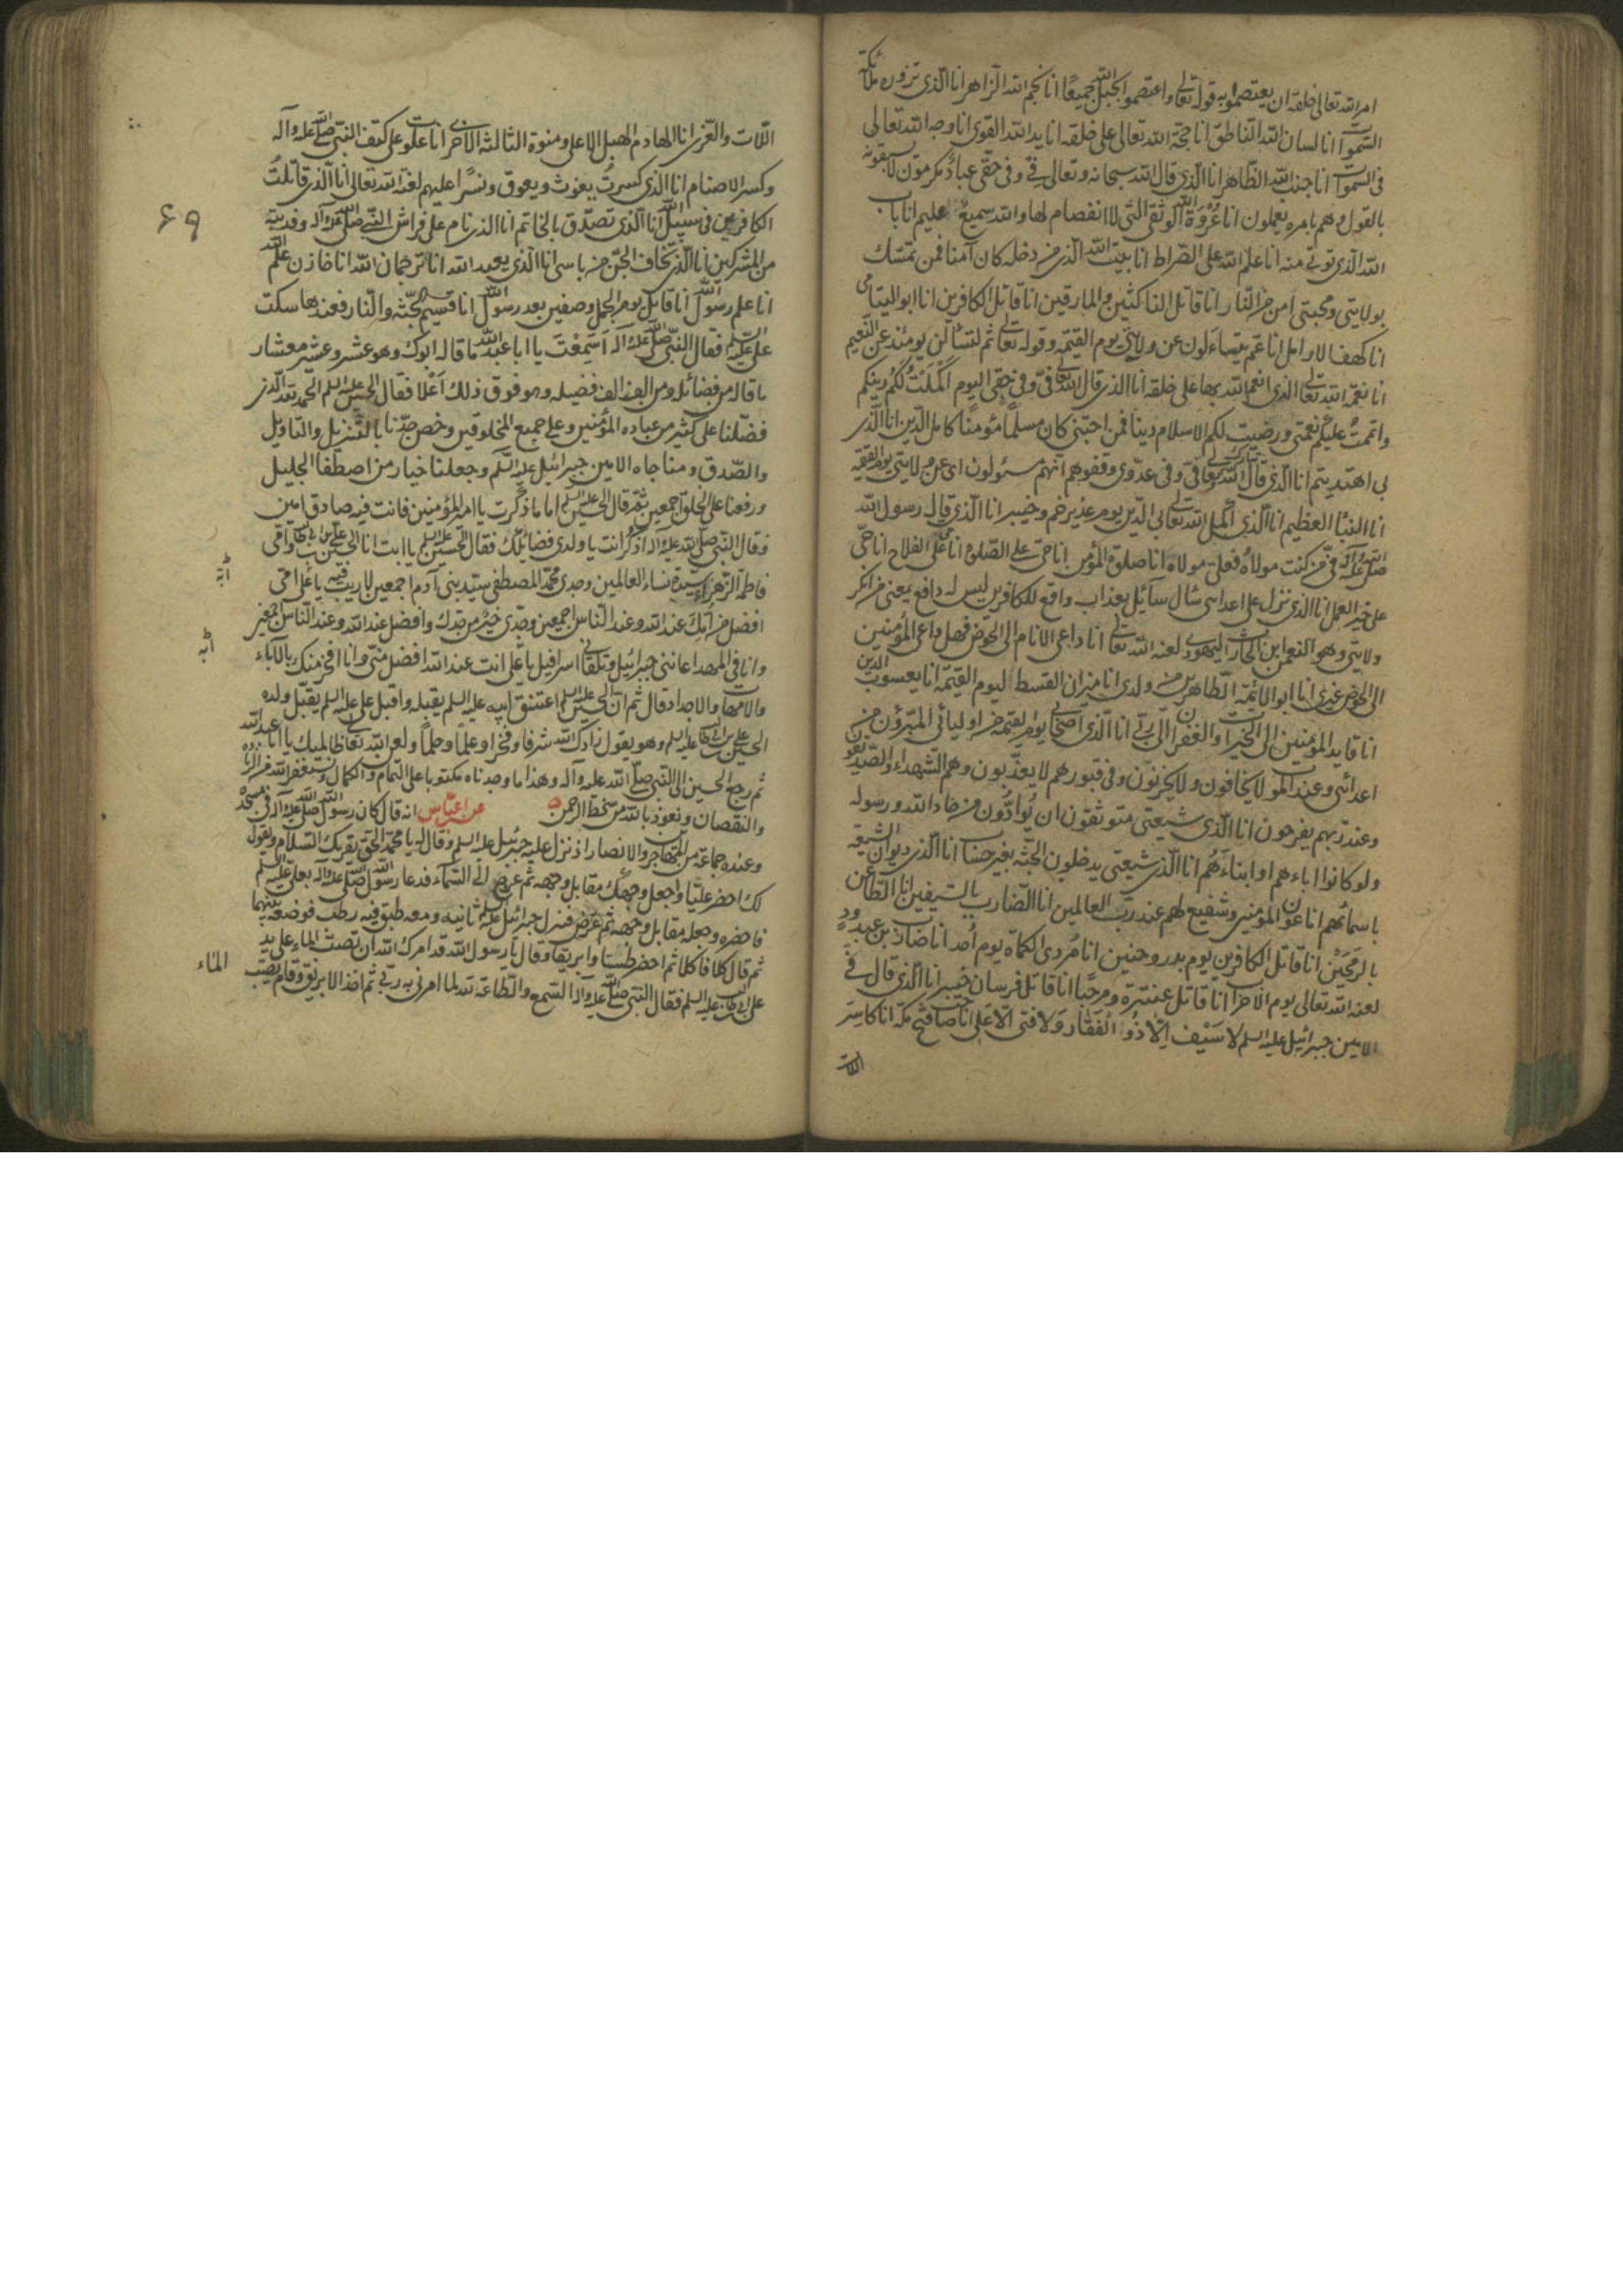 امر الله تعالى خلقه ان يعتصموا به قوله تعالى واعتصموا بحبل الله جميعًا انا نجم الله الزاهر انا الذى تزوره ملائكة
السموات انا لسان الله الناطق انا حجة الله تعالى على خلقه انا يد الله القوى انا وجه الله تعالى
فى السموات انا جنب الله الظاهر انا الذى قال الله سبحانه وتعالى فى وفى حقى عباد مكرمون لا يسبقونه
بالقول وهم بامره يعملون انا عروة الله الوثقى التى لا انفصام لها والله سميع عليم انا باب
الله الذى توتى منه انا علم الله على الصراط انا بيت الله الذى من دخله كان آمنا فمن تمسك
بولايتى ومحبتى امن من النار انا قاتل الناكثين والمارقين انا قاتل الكافرين انا ابو اليتامى
انا كهف الارامل انا عم يتساءلون عن ولايتى يوم القيمة وقوله تعالى ثم لتسئالن يومئذ عن النعيم
انا نعمة الله تعالى الذى انعم الله بها على خلقه انا الذى قال الله تعالى فى وفى حقى اليوم اكملت لكم دينكم
واتممت عليكم نعمتى ورضيت لكم الاسلام دينا فمن احبنى كان مسلما مؤمنا كامل الدين انا الذى
بى اهتديتم انا الذى قال الله تبارك وتعالى فى وفى عدوى وقفوهم انهم مسئولون اى عن ولايتى يوم القيمة
انا النبأ العظيم انا الذى اكمل الله تعالى الدين يوم غدير خم وخيبر انا الذى قال رسول الله
صلى الله عليه وآله فى من كنت مولاه فعلى مولاه انا صلوة المؤمن انا حى على الصلوة انا حى على الفلاح انا حى
على خير العمل انا الذى نزل على اعدائى سال سآئل بعذاب واقع للكافرين ليس له دافع يعنى من انكر
ولايتى وهو النعمن ابن الحارث اليهودى لعنه الله تعالى انا داعى الانام الى الحوض فهل داعى المؤمنين
الى الحوض غيرى انا ابو الائمة الطاهرين من ولدى انا ميزان القسط اليوم القيمة انا يعسوب الدين
انا قايد المؤمنين الى الخيرات والغفران الى ربى انا الذى اصحابى يوم القيمة من اوليائى المبرؤن من
اعدائى وعند الموت لا يخافون ولا يحزنون وفى قبورهم لا يعذبون وهم الشهداء والصديقون
وعند ربهم يفرحون انا الذى شيعتى متوثقون ان يوادون من حاد الله ورسوله
ولو كانوا اباءهم او ابناءهم انا الذى شيعتى يدخلون الجنة بغير حساب انا الذى ديوان الشيعة
باسمائهم انا عون المؤمنين وشفيع لهم عند رب العالمين انا الضارب بالسيفين انا الطاعن
بالرمحين انا قاتل الكافرين يوم بدر وحنين انا مردى الكماة يوم أحد انا ضارب بن عبد ود
لعنه الله تعالى يوم الاحزاب انا قاتل عنترة ومرحب انا قاتل فرسان خيبر انا الذى قال فى
الامين جبرائيل عليه السلم لا سيف الا ذو الفقار ولا فتى الا على انا صاحب فتح مكة انا كاسر
اللات
اللات والعزى انا الهادم الهبل الاعلى ومنوة الثالثة الاخرى انا علوت على كتف النبى صلى الله عليه وآله
وكسر الاصنام انا الذى كسرت يغوث ويعوق ونسرا عليهم لعنة الله تعالى انا الذى قاتلت
الكافرين فى سبيل الله انا الذى تصدق بالخاتم انا الذى نام على فراش النبى صلى الله عليه وآله وفديته
من المشركين انا الذى يخاف الجن من باسى انا الذى يعبد الله انا ترجمان الله انا خازن علم الله
انا علم رسول الله انا قاتل يوم الجمل وصفين بعد رسول الله انا قسيم الجنة والنار فعندها سكت
على عليه السلم فقال النبى صلى الله عليه وآله اسمعت يا ابا عبد الله ما قاله ابوك وهو عشر وعشر معشار
ما قاله من فضائله ومن الف الف فضيلة وهو فوق ذلك اعلا فقال الحسين عليه السلم الحمد لله الذى
فضلنا على كثير من عباده المؤمنين وعلى جميع المخلوقين وخص جدنا بالتنزيل والتاويل
والصدق ومناجاه الامين جبرائيل عليه السلم وجعلنا خيار من اصطفا الجليل
ورفعنا على الخلق اجمعين ثم قال الحسين عليه السلم اما ما ذكرت يا امير المؤمنين فانت فيه صادق امين
فقال النبى صلى الله عليه وآله اذكر انت يا ولدى فضائلك فقال الحسين عليه السلم يا ابت انا الحسين بن على بن ابى طالب وامى
فاطمة الزهراء سيدة نساء العالمين وجدى محمد المصطفى سيد بنى آدم اجمعين لا ريب فيه يا على امى
افضل من امك عند الله وعند الناس اجمعين وجدى خير من جدك وافضل عند الله وعند الناس اجمعين
وانا فى المهد اعاننى جبرائيل وتلقانى اسرافيل يا على انت عند الله افضل منى وانا افخر منك بالاباء
والامهات والاجداد قال ثم ان الحسين عليه السلم اعتنق ابيه عليه السلم يقبله واقبل على عليه السلم يقبل ولده
الحسين على بن ابى طالب عليه السلم وهو يقول زادك الله شرفا وفخرا وعلما وحلما ولعن الله تعالى ظالميك يا ابا عبد الله
ثم رجع الحسين الى النبى صلى الله عليه وآله وهذا ما وجدناه مكتوبا على التمام والكمال ونستغفر الله من الزيادة
والنقصان ونعوذ بالله من سخط الرحمن عن ابن عباس انه قال كان رسول الله صلى الله عليه وآله فى مسجده
وعنده جماعة من المهاجرين والانصار اذ نزل عليه جبرئيل عليه السلم وقال له يا محمد الحق يقرئك السلام ويقول
لك احضر عليا واجعل وجهك مقابل وجهه ثم عرج الى السماء فدعا رسول الله صلى الله عليه وآله بعلى عليه السلم
فاحضره وجعله مقابل وجهه ثم عرض فنزل جبرائيل عليه السلم ثانية ومعه طبق فيه رطب فوضعه بينهما
ثم قال كلا فاكلا ثم احضر طستا وابريقا وقال يا رسول الله قد امرك الله ان تصب الماء على يد
على بن ابى طالب عليه السلم فقال النبى صلى الله عليه وآله السمع والطاعة لله لما امرنى به ربى ثم اخذ الابريق وقام يصب
الماء